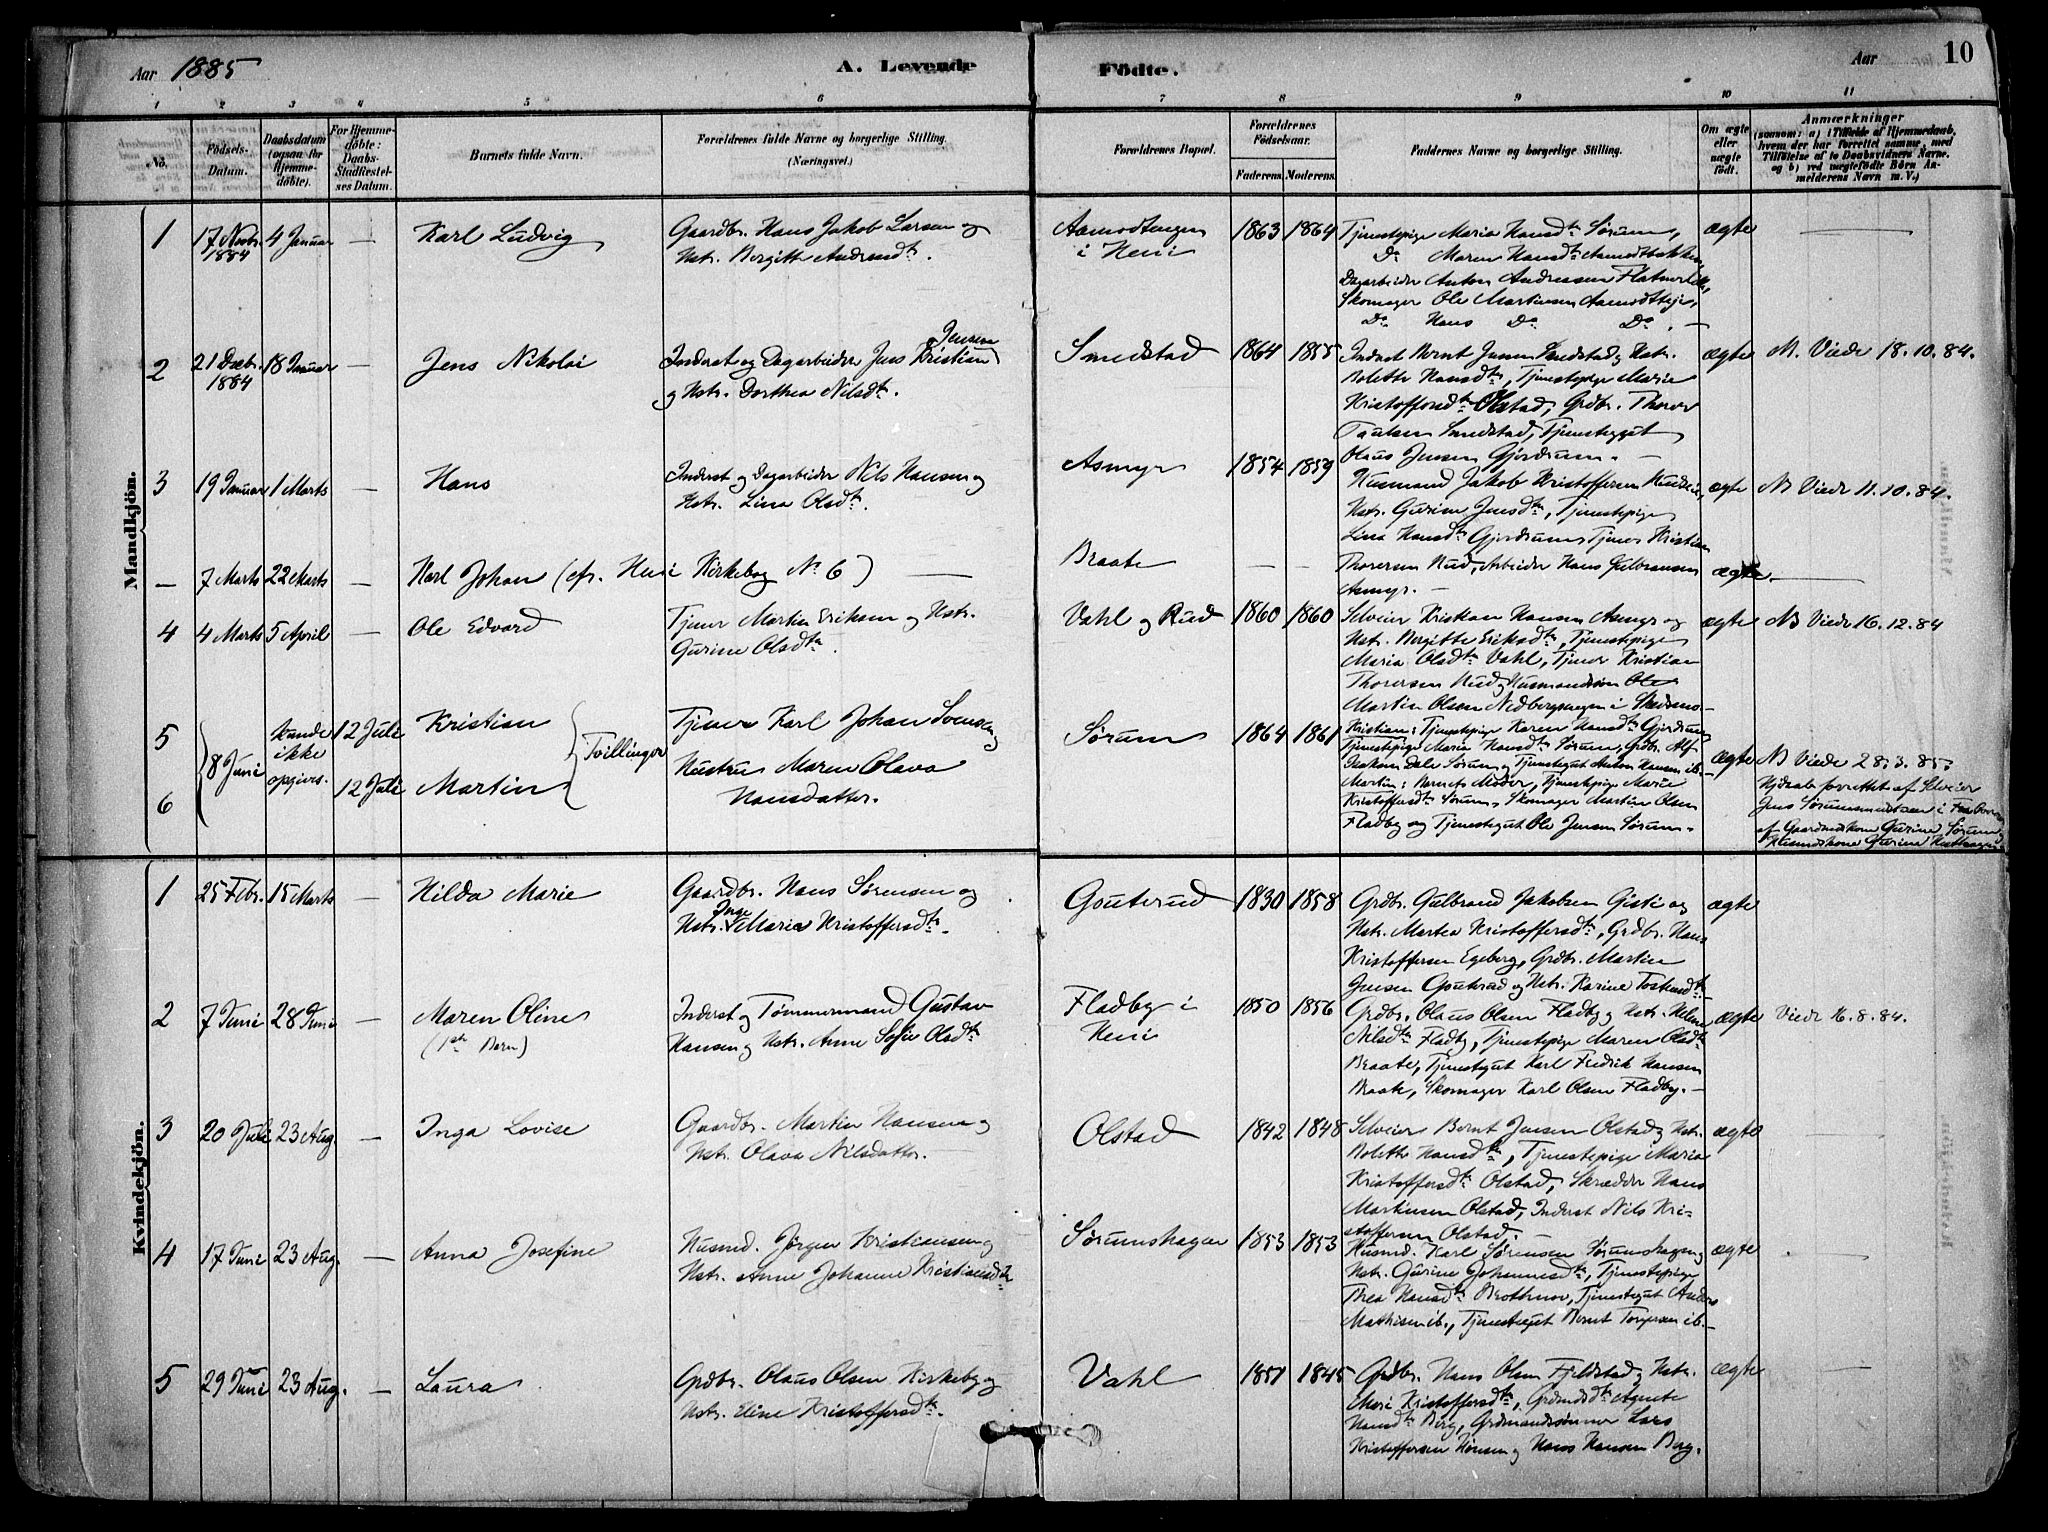 Aar 1885
A. Levende
Födte.
Aar
10
1 2 3 4 5 6 7 8 9 10 11
No.
Födsels-Datum.
Daabsdatum (ogsaa for Hjemmedöbte).
For Hjemmedöbte: Daabs-Stadfæstelses Datum.
Barnets fulde Navn.
Forældrenes fulde Navne og borgerlige Stilling.
(Næringsvei.)
Forældrenes Bopæl.
Forældrenes Födselsaar.
Faderens. Moderens.
Faddernes Navne og borgerlige Stilling.
Om ægte eller uægte födt.
Anmærkninger
(saasom: a) i Tilfælde af Hjemmedaab, hvem der har forrettet samme, med Tilföielse af to Daabsvidners Navne, og b) ved uægtefödte Börn Anmelderens Navn m. V.)
Mandkjön.
1 17 Novbr. 1884 4 Januar — Karl Ludvig
Gaardbr. Hans Jakob Larsen og
Hstr. Bergitte Andersdtr.
Aamodtengen i Heni
1863 1864
Tjenestepige Maria Hansdtr Sørum,
Do Maren Hansdtr Aamodtbakken
Dagarbeider Anton Andreasen
Skomager Ole Martinsen Aamodteje,
Do Hans Do Do. —
ægte —
2 21 Decbr. 1884 18 Januar — Jens Nikolai
Inderst og Dagarbeider Jens Kristian Jensen
og Hstr. Dorthea Nilsdtr.
Smedstad
1864 1855
Inderst Bernt Jensen Smedstad og Hstr.
Bolette Hansdtr, Tjenestepige Marie
Kristoffersdtr Olstad, Grdbr. Thorer
Paulsen Smedstad, Tjenestegut
Olaus Jensen Gjerdrum. —
ægte M. Viede 18.10.84.
3 19 Januar 1 Marts — Hans
Inderst og Dagarbeider Nils Hansen og
Hstr. Lina Olsdtr.
Asmyr
1854 1859
Husmand Jakob Kristoffersen
Hstr. Gurine Jensdtr, Tjenestepige
Lina Hansdtr Gjerdrum, Tjener Kristian
Thoresen Rud, Arbeider Hans Gulbransen
Asmyr. —
ægte NB Viede 11.10.84.
— 7 Marts 22 Marts — Karl Johan (cfr. Heni Kirkebog No 6) —
Braate — — ægte. —
4 4 Marts 5 April — Ole Edvard
Tjener Martin Eriksen og Hstr.
Gurine Olsdtr.
Vahl og Rud
1860 1860
Selveier Kristian Hansen Asmyr og
Hstr. Bergitte Eriksdtr, Tjenestepige
Maria Olsdtr Vahl, Tjener Kristian
Thoresen Rud og Husmandssøn Ole
Martin Olsen Nedbergengen i
ægte NB Viede 16.12.84
5 6 8 Juni Kunde ikke opgives. 12 Juli 12 Juli
Kristian
Martin
Tvillinger
Tjener Karl Johan Svensen og
Hustru Maren Olava
Hansdatter.
Sørum
1864 1861
Kristian: Tjenestepige Karen Hansdtr Gjerdrum,
Tjenestepige Maria Hansdtr Sørum, Grdbr. Alf
Isaksen Dale Sørum og Tjenestegut Anton Hansen ib. —
Martin: Barnets Moder, Tjenestepige Marie
Kristoffersdtr Sørum, Skomager Martin Olsen
Fladby og Tjenestegut Ole Jensen Sørum. —
ægte NB Viede 28.3.85.
Hjdaab forrettet af Selveier
Jens i
af Gaardmdskone Gurine Sørum og
Husmdskone Gurine
Kvindekjön.
1 25 Febr. 15 Marts — Hilda Marie
Gaardbr. Hans Sørensen og
Hstr. Inge Marie Kristoffersdtr.
Gouterud
1830 1858
Grdbr. Gulbrand Jakobsen Gisti og
Hstr. Martea Kristoffersdtr, Grdbr. Hans
Kristoffersen Egeberg, Grdbr. Martin
Jensen Gouterud og Hstr. Karine
ægte
2 7 Juni 28 Juni — Maren Oline
(1ste Barn)
Inderst og Tømmermand Gustav
Hansen og Hstr. Anne Sofie Olsdtr
Fladby i Heni
1850 1856
Grdbr. Olaus Olsen Fladby og Hstr. Helene
Nilsdtr Fladby, Tjenestepige Maren Olsdtr
Braate, Tjenestegut Karl Fredrik Hansen
Braate, Skomager Karl Olsen Fladby. —
ægte Viede 16.8.84.
3 20 Juli 23 Aug. — Inga Lovise
Gaardbr. Martin Hansen og
Hstr. Olava Nilsdatter. —
Olstad
1842 1848
Selveier Bernt Jensen Olstad og Hstr.
Bolette Hansdtr, Tjenestepige Maria
Kristoffersdtr Olstad, Skrædder Hans
Martinsen Olstad, Inderst Nils Kri-
stoffersen Olstad. —
ægte —
4 17 Juni 23 Aug. — Anna Josefine
Husmd. Jørgen Kristiansen og
Hstr. Anne Johanne Kristiansdtr
Sørumshagen
1853 1853
Husmd. Karl Sørensen Sørumshagen og
Hstr. Gurine Johannesdtr, Tjenestepige
Thea Hansdtr Brothmoe, Tjenestegut Anders
Mathisen ib., Tjenestegut Bernt Torgersen ib. —
ægte —
5 29 Juni 23 Aug. — Laura
Grdbr. Olaus Olsen Kirkeby og
Hstr. Eline Kristoffersdtr.
Vahl
1851 1845
Grdbr. Hans Olsen Fjeldstad og Hstr.
Mari Kristoffersdtr, Grdmdsdtr Agnete
Hansdtr Berg, Grdmandssønner Lars
Kristoffersen Hønsen og Hans Hansen Berg.
ægte —